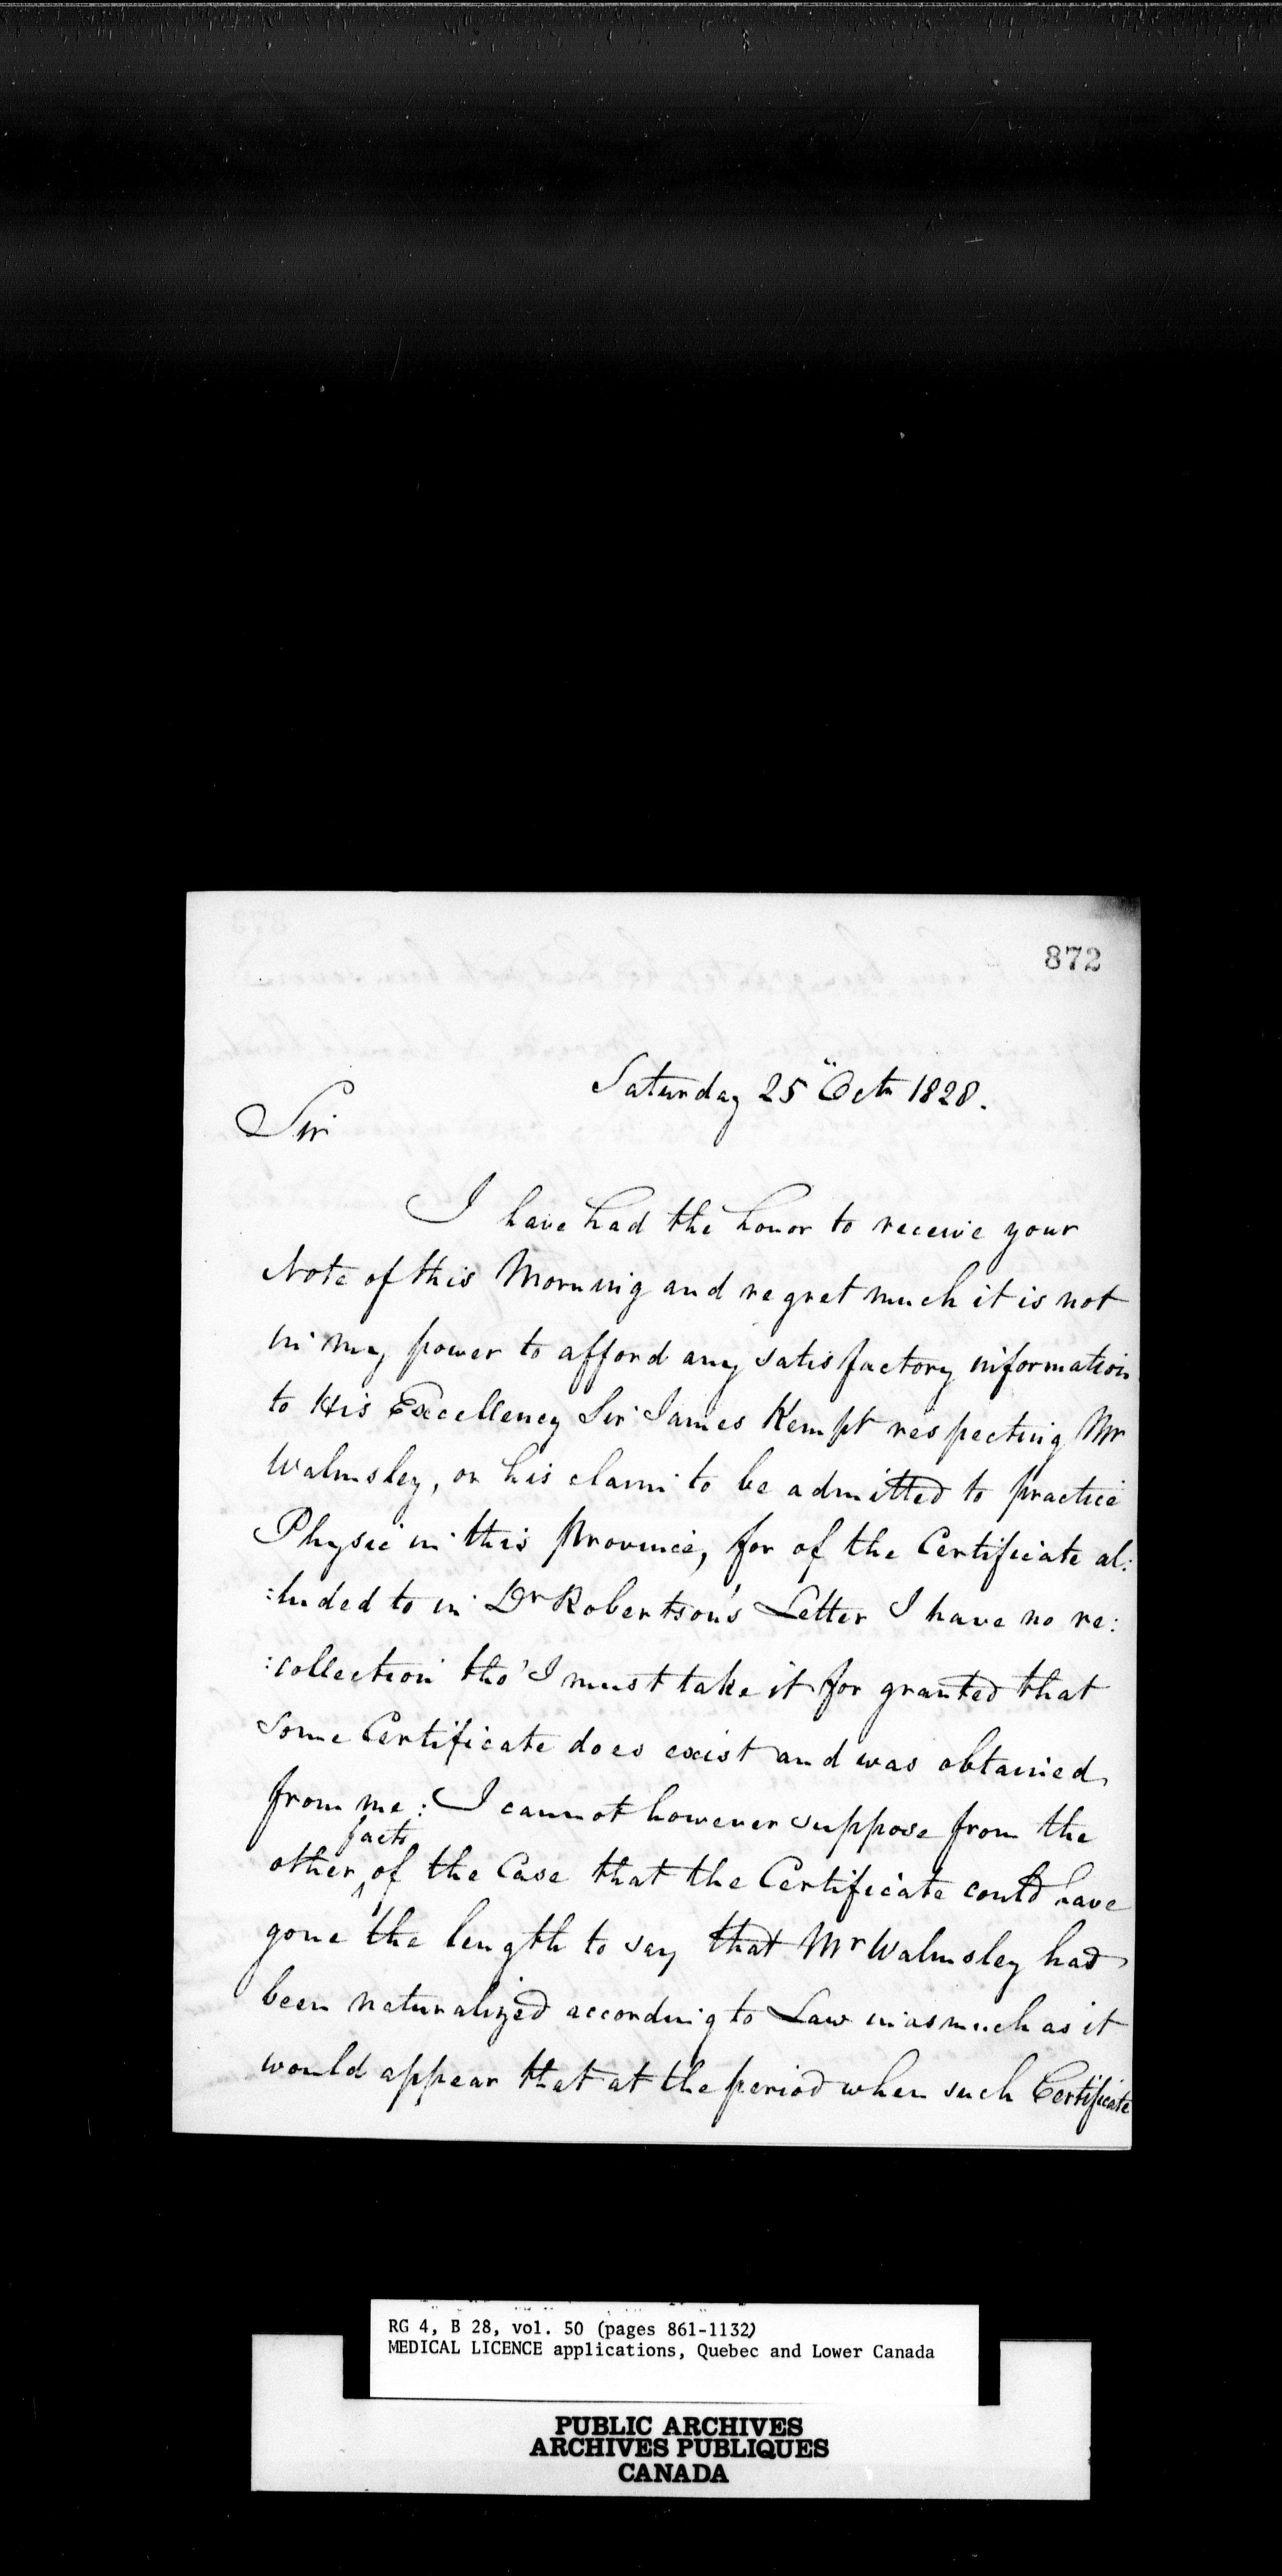 872
Saturday 25" Octr 1828.
Sir
I have had the honor to receive your
Note of this Morning and regret much it is not
in my power to afford any satisfactory information
to His Excellency Sir James Kempt respecting Mr
Walmsley, or his claim to be admitted to practice
Physic in this Province, for of the Certificate al:
:luded to in Dr Robertson's Letter I have no re:
:collection tho' I must take it for granted that
some Certificate does exist and was obtained
from me: I cannot however suppose from the
facts
other ‸ of the Case that the Certificate could have
gone the length to say that Mr Walmsley had
been naturalized according to Law in as much as it
would appear that at the period when such Certificate
RG 4, B 28, vol. 50 (pages 861-1132)
MEDICAL LICENCE applications, Quebec and Lower Canada
PUBLIC ARCHIVES
ARCHIVES PUBLIQUES
CANADA